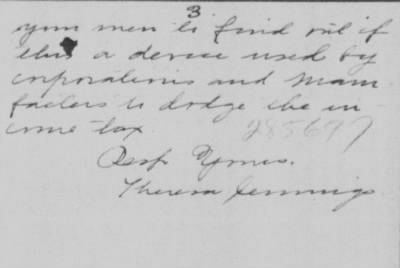 3
your men to find out if
this a device used by
corporations and manu
facters to dodge the in
come tax.
285697
Resp Yours.
Theresa Jennings